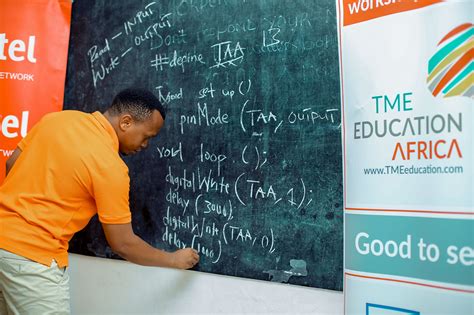 tel
NETWORK
tel
NETWORK
Read - INPUT
Write - OUTPUT
Don't
#define TAA 13
void setup() {
pinMode (TAA, OUTPUT
void loop() {
digitalWrite(TAA, 1);
delay (3000)
digitalWrite(TAA, 0);
delay (1000)
workshop
TME
EDUCATION
AFRICA
www.TMEeducation.com
Good to se